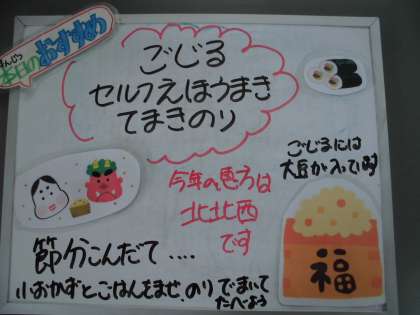 ほんじつ
本日のおすすめ
ごじる
セルフえほうまき
てまきのり
ごじるには
大豆が入っています
今年の恵方は
北北西
です
福
節分こんだて‥‥
小おかずとごはんをまぜ、のりでまいて
たべよう